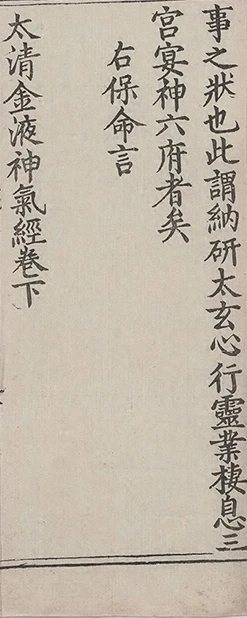 事之狀也此謂納研太玄心行靈業棲息三
宮宴神六府者矣
右保命言
太清金液神氣經卷下